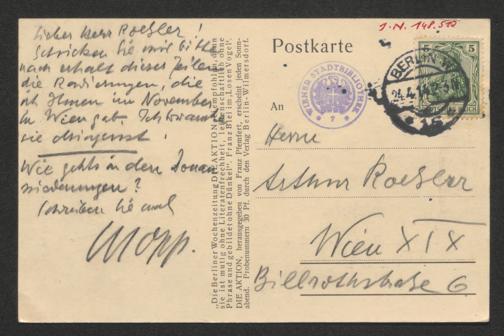 Lieber Herr Roeßler!
Schicken Sie mir bitte
nach erhalt dieser Zeilen
die Radierungen, die
ich Ihnen im November
in Wien gab. Ich brauche
sie dringenst.
Wie gehts in den Donau
niederungen?
Schreiben Sie mal
Mopp.
„Die Berliner Wochenzeitung DIE AKTION sei empfohlen, denn
sie ist mutig ohne Literatenfrechheit, leidenschaftlich ohne
Phrase und gebildet ohne Dünkel". Franz Blei im „Losen Vogel".
DIE AKTION, herausgegeben von Franz Pfemfert, erscheint jeden Sonn-
abend. Probenummern 30 Pf. durch den Verlag Berlin-Wilmersdorf.
J.N. 148.510
Postkarte
WIENER STADTBIBLIOTHEK
7
BERLIN-W
5 5
An
Herrn
Arthur Roeßler
Wien XIX
Billrothstraße 6